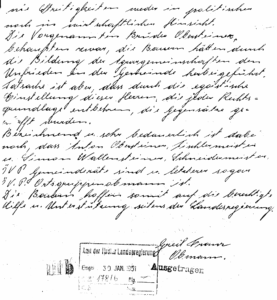 nie Streitigkeiten weder in politischer
noch in wirtschaftlicher Hinsicht.
Die Vorgenannten Brüder Obsteiner,
behaupten zwar, die Bauern hätten durch
die Bildung der Agrargemeinschaften den
Unfrieden in der Gemeinde herbeigeführt,
Tatsache ist aber, dass durch die egoistische
Einstellung dieser Herren, die jeder Rechts-
grundlage entbehren, die Gegensätze ge-
wurden.
Bezeichnend u. sehr bedauerlich ist dabei
noch, dass Anton Tischlermeister
u. Simon Schneidermeister,
Ö.V.P. Gemeinderäte sind u. letzterer sogar
Ö.V.P. Ortsgruppenobmann ist.
Die Bauern hoffen somit auf die
Hilfe u. Unterstützung seitens der Landesregierung.
Franz
Obmann.
Amt der Landesregierung
30. JAN. 1951
Ausgetragen